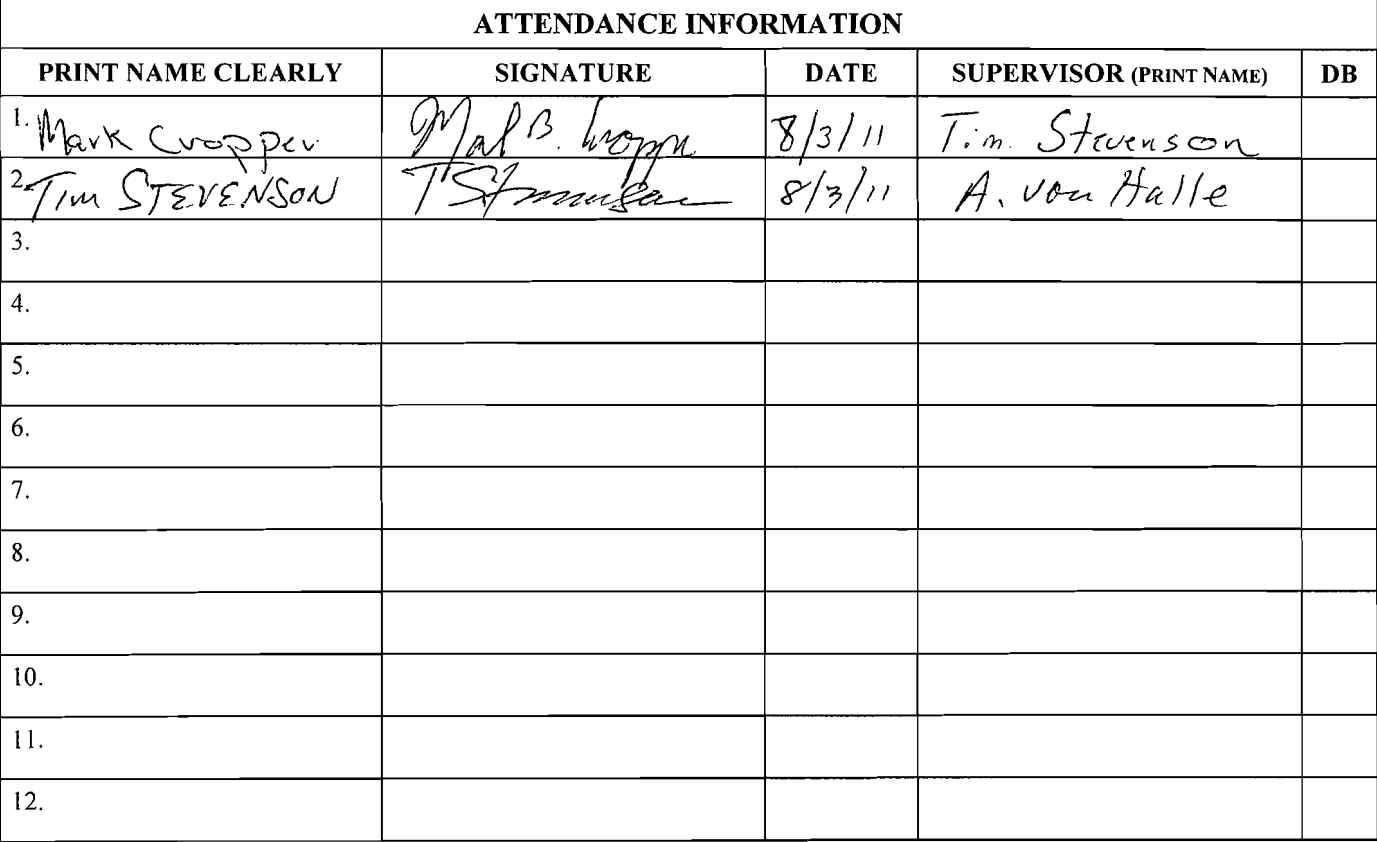 ATTENDANCE INFORMATION
PRINT NAME CLEARLY SIGNATURE DATE SUPERVISOR (PRINT NAME) DB
1. Mark Cropper 8/3/11 Tim Stevenson
2. Tim STEVENSON 8/3/11 A. von Halle
3.
4.
5.
6.
7.
8.
9.
10.
11.
12.